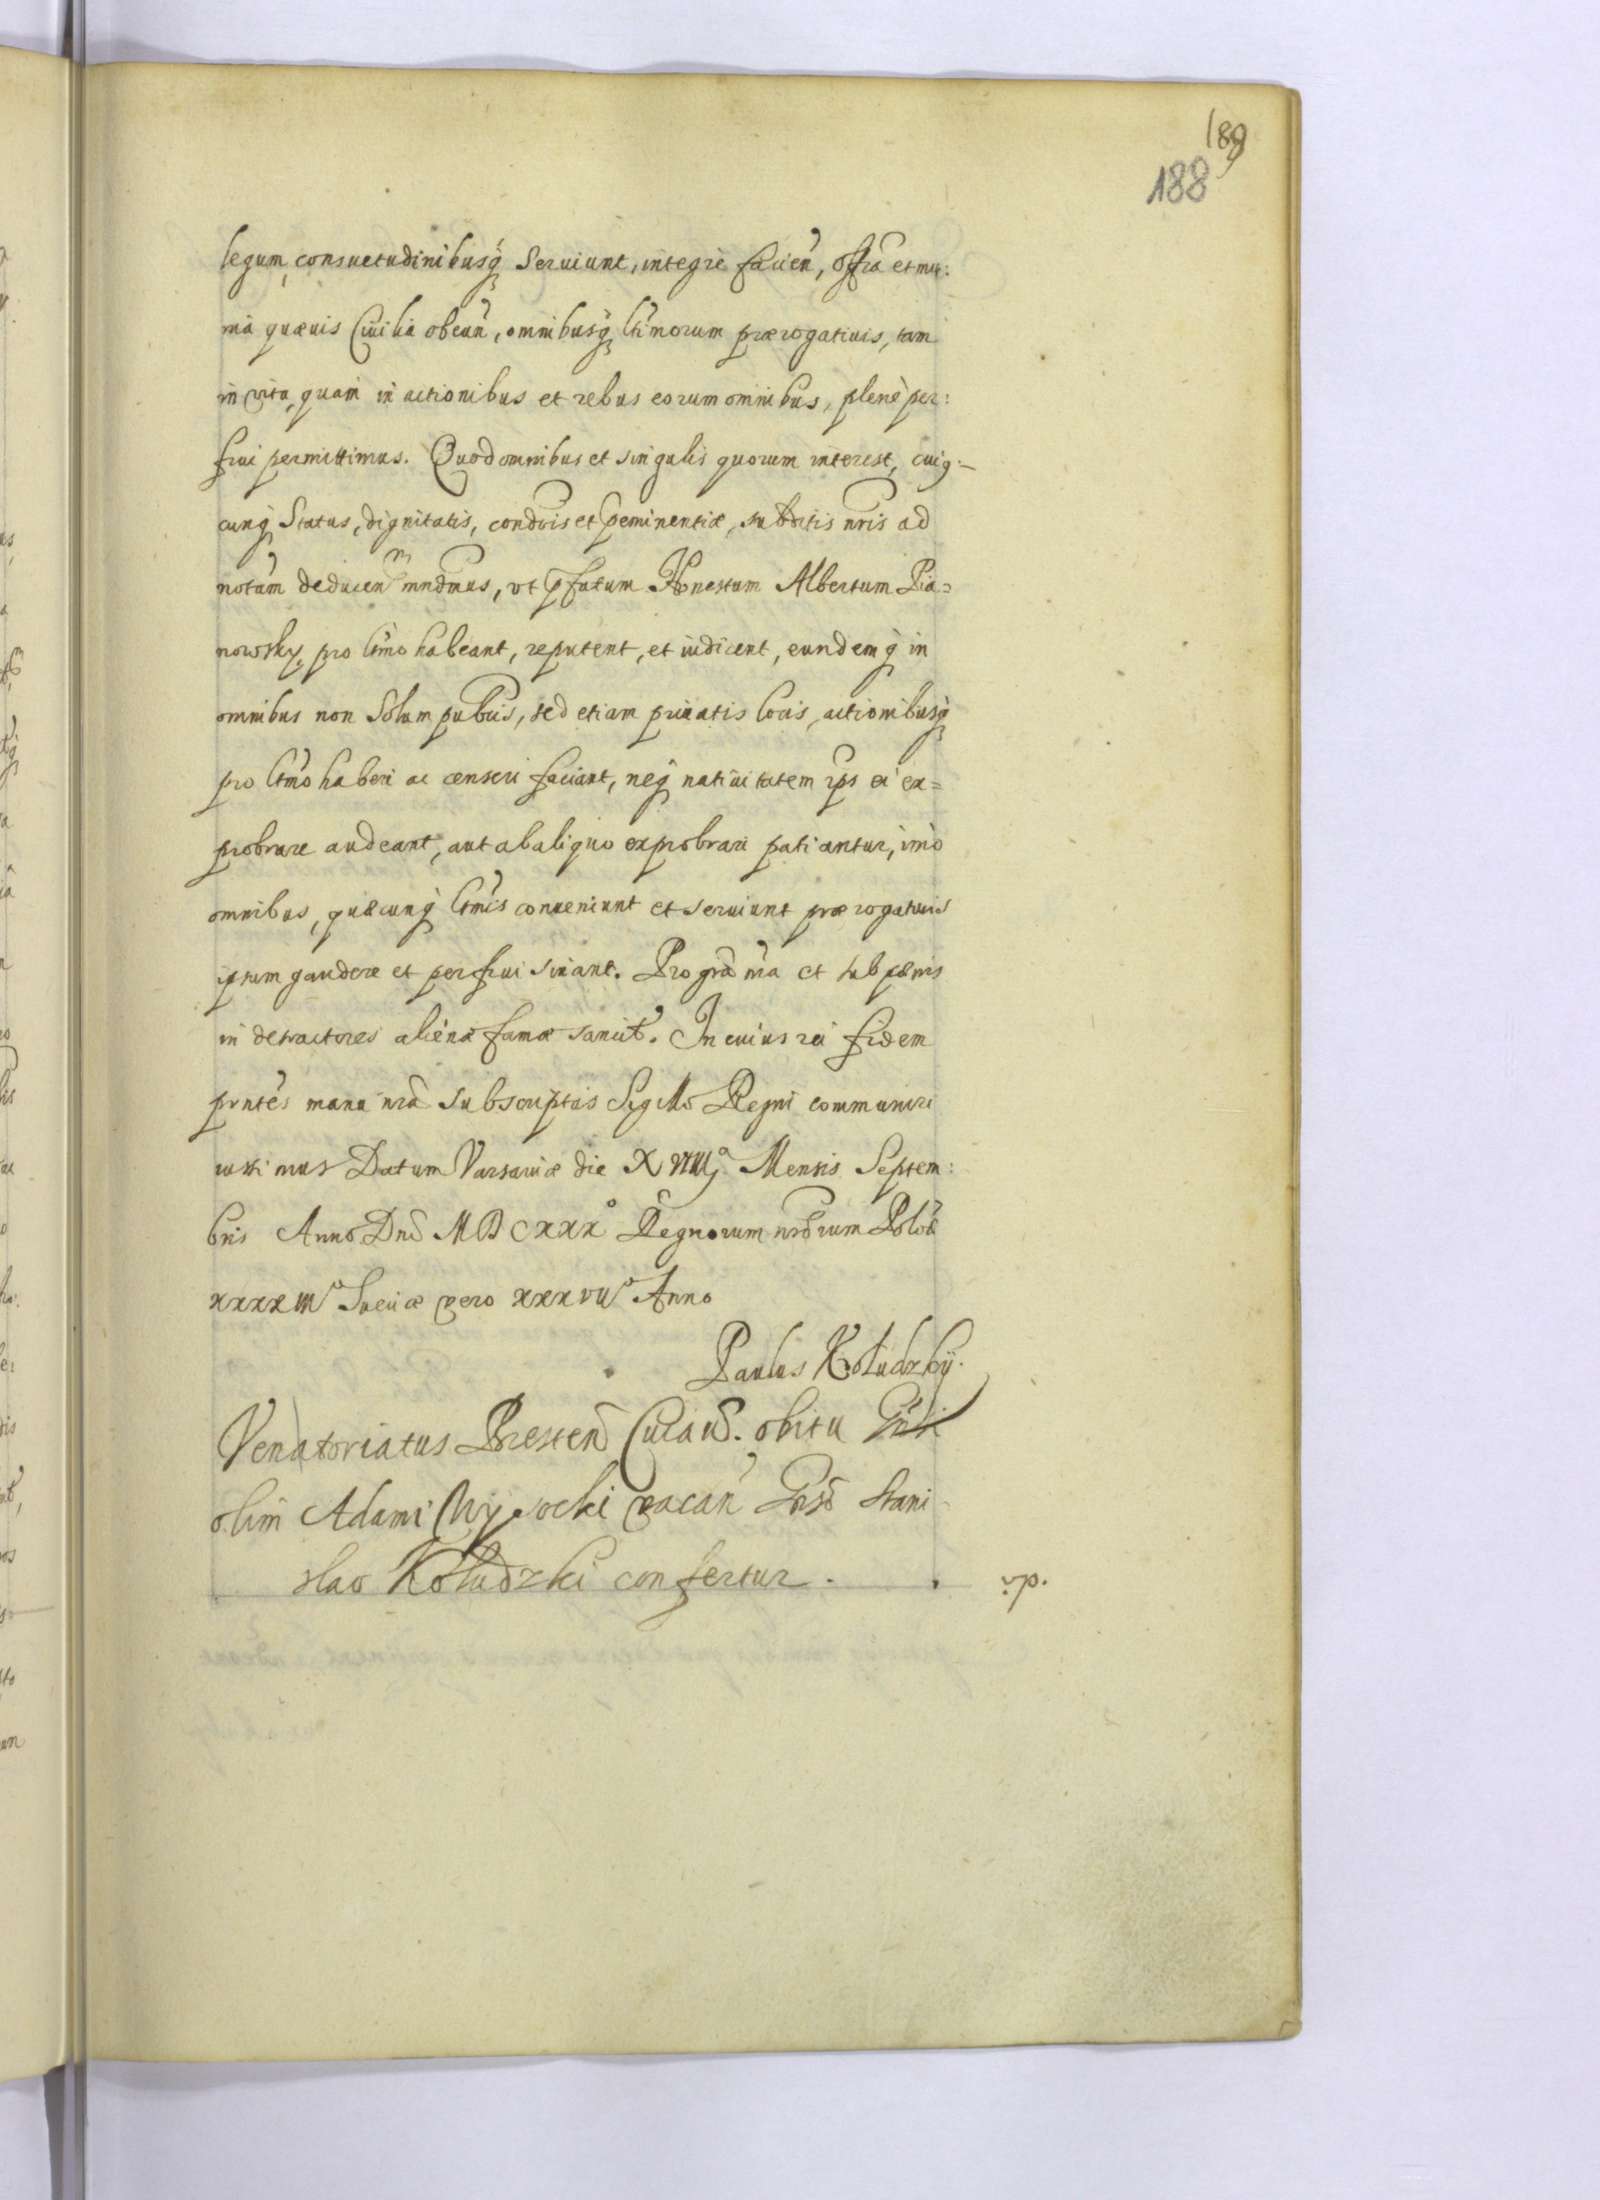 189
188
legum, consuetudinibusq́ seruiunt, integrè facien̄, offia et mu:
nia quæuis Ciuilia obeun̄, omnibusq́ ltimorum prærogatiuis, tam
in vita, quam in actionibus et rebus eorum omnibus, plenè per:
frui permittimus. Quod omnibus et singulis quorum interest, cuig:
cunq́ Status, dignitatis, condōis et p̄eminentiæ, subditis nr̄is ad
notam deducen̄ mndmus, vt p̄fatum Honestum Albertum Pia=
nowsky pro ltmo habeant, reputent, et iudicent, eundemq́ in
omnibus non Solum pubcis, sed etiam priuatis locis, actionibusq́
pro ltmo haberi ac censeri faciant, neq́ natiuitatem ips ei ex=
probrare audeant, aut ab aliquo exprobrari patiantur, imò
omnibus, quæcunq́ ltmis conueniunt et seruiunt prærogatiuis
ipsum gaudere et perfrui sinant. Pro grā nr̄a et sub pænis
in detractores alienæ famæ sancit. In cuius rei fidem
pr̄ntes manu nr̄a subscriptas Sigillo Regni communiri
iussimus Datum Varsauiæ die XVIIIJª Mensis Septem:
bris Anno Dnī MDCXXXº Regnorum nrōrum Polōe
xxxxiiiº Sueciæ vero xxxviiº Anno
Paulus Kołudzky.
Venatoriatus Bresten̄ Cuiaū. obitu Gnsi
olim Adami Wysocki vacan̄ Gnso Stani-
slao Kołudzki confertur.
vp.